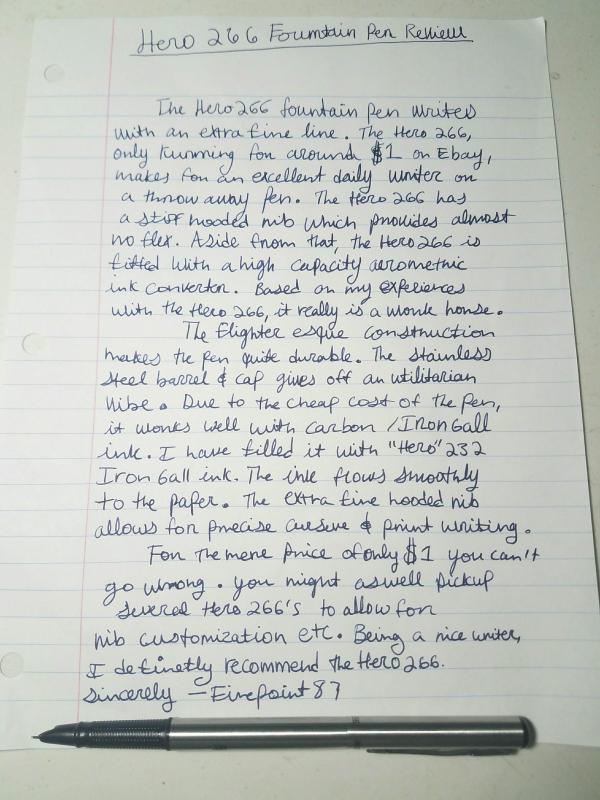 Hero 266 Fountain Pen Review
The Hero 266 fountain pen writes
with an extra fine line. The Hero 266,
only running for around $1 on Ebay,
makes for an excellent daily writer or
a throw away pen. The Hero 266 has
a stiff hooded nib which provides almost
no flex. Aside from that, the Hero 266 is
fitted with a high capacity aerometric
ink converter. Based on my experiences
with the Hero 266, it really is a work horse.
The flighter esque construction
makes the pen quite durable. The stainless
steel barrel & cap gives off an utilitarian
vibe. Due to the cheap cost of the pen,
it works well with carbon / Iron Gall
ink. I have filled it with "Hero" 232
Iron Gall ink. The ink flows smoothly
to the paper. The extra fine hooded nib
allows for precise cursive & print writing.
For the mere price of only $1 you can't
go wrong. you might aswell pickup
several Hero 266's to allow for
nib customization etc. Being a nice writer,
I definetly recommend the Hero 266.
Sincerely - Finepoint 87